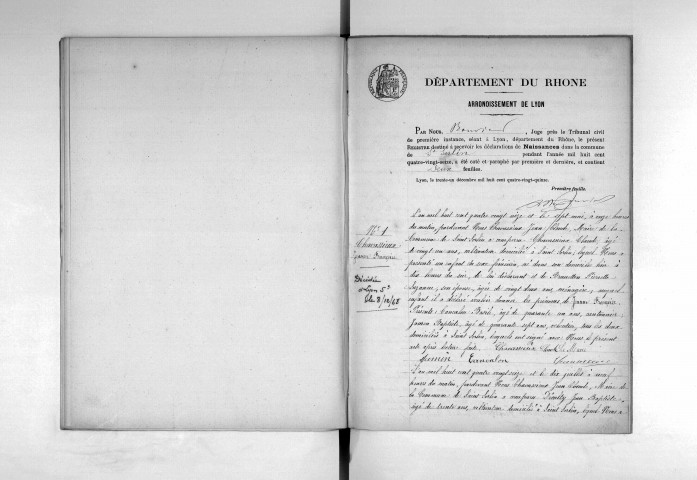 DÉPARTEMENT DU RHONE
ARRONDISSEMENT DE LYON
PAR NOUS, Juge près le Tribunal civil
de première instance, séant à Lyon, département du Rhône, le présent
REGISTRE destiné à recevoir les déclarations de Naissances dans la commune
de St Sorlin pendant l'année mil huit cent
quatre-vingt-seize, a été coté et paraphé par première et dernière, et contient
deux feuilles.
Lyon, le trente-un décembre mil huit cent quatre-vingt-quinze.
Première feuille.
N° 1
Chavassieux
Décédée
à Lyon 5e
le 8/12/68
L'an mil huit cent quatre vingt seize et le sept mai, à onze heures
du matin, pardevant Nous Chavassieux Jean Claude, Maire de la
Commune de Saint Sorlin a comparu Chavassieux Claude, âgé
de vingt ans, cultivateur domicilié à Saint Sorlin, lequel Nous a
présenté un enfant du sexe féminin, né dans son domicile hier à
dix heures du soir, de lui déclarant et de Pierrette
Suzanne, son épouse, âgée de vingt deux ans, ménagère, auquel
enfant il a déclaré vouloir donner les prénoms de
Présents : âgé de quarante un ans, cantonnier
Baptiste, âgé de quarante sept ans, cultivateur, tous les deux
domiciliés à Saint Sorlin, lesquels ont signé avec Nous le présent
acte après lecture faite. Chavassieux Le Maire
Chavassieux
L'an mil huit cent quatre vingt seize et le dix juillet à neuf
heures du matin, pardevant Nous Chavassieux Jean Claude, Maire de
la Commune de Saint Sorlin a comparu Jean Baptiste,
âgé de trente ans, cultivateur domicilié à Saint Sorlin, lequel Nous a